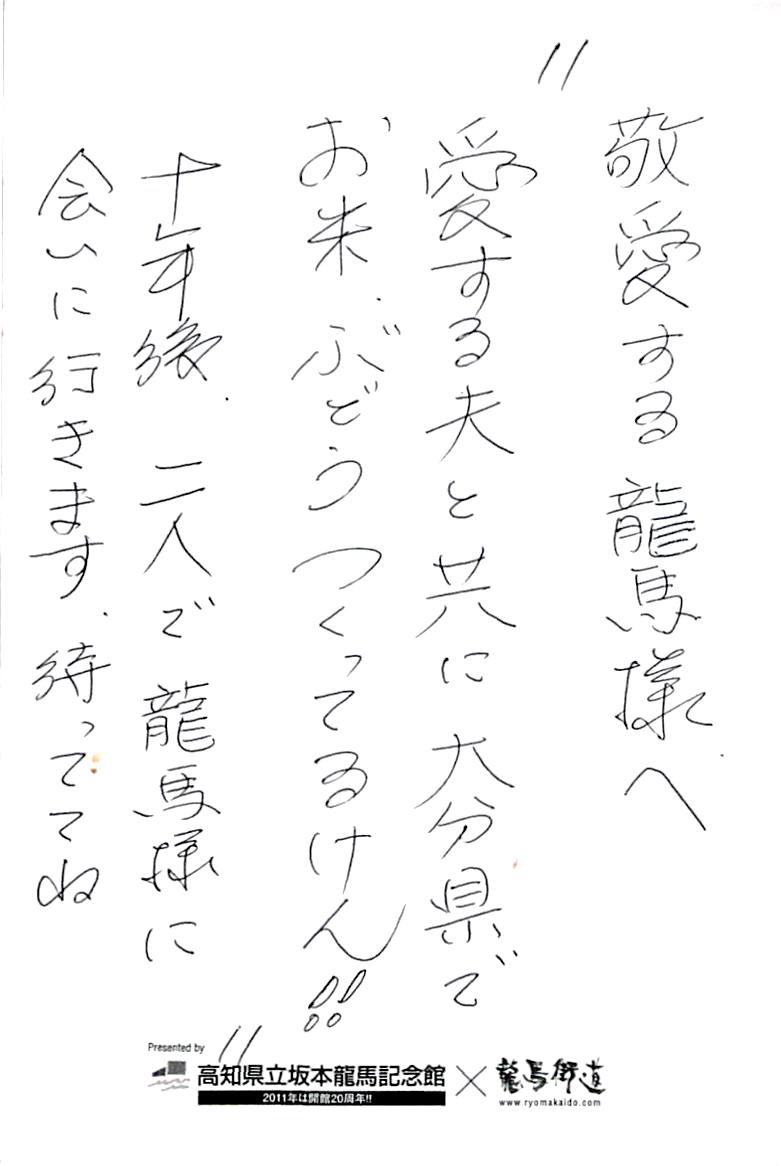 敬愛する龍馬様へ
〃
愛する夫と共に大分県で
お米、ぶどうつくってるけん!!
十年後、二人で龍馬様に
会いに行きます、待っててね
〃
Presented by
高知県立坂本龍馬記念館×龍馬街道
2011年は開館20周年!!
www.ryomakaido.com